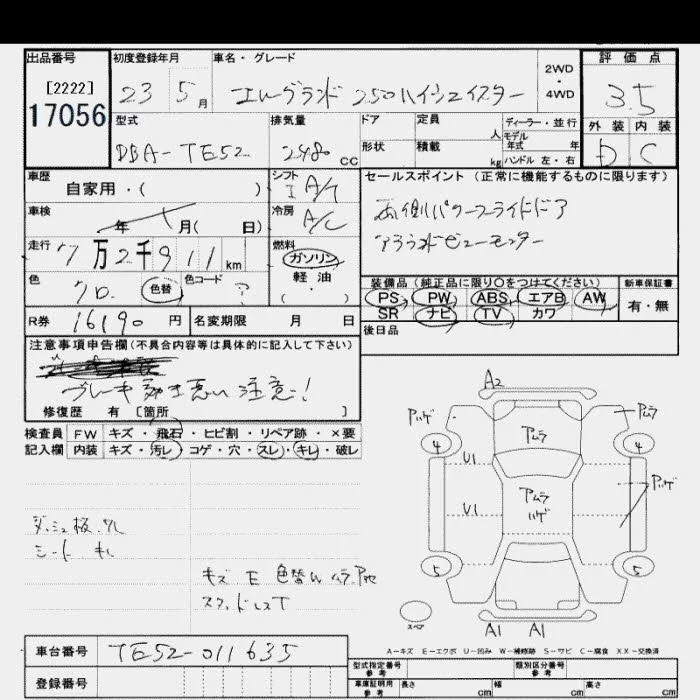 出品番号 初度登録年月 車名・グレード 2WD・4WD 評価点
[2222]
17056
23 5月 エルグランド 250ハイウェイスター 3.5
型式 排気量 ドア 定員 人 ディーラー・並行 外装 内装
モデル年式 年
DBA-TE52 2480cc 形状 積載 kg ハンドル 左・右 D C
車歴 自家用・( ) シフト IA/T セールスポイント (正常に機能するものに限ります)
車検 年 月( 日) 冷房 A/C 両側パワースライドドア
アラウンドビューモニター
走行 7万2千911km 燃料 ガソリン・軽油・( )
色 クロ 色替 色コード ? 装備品(純正品に限り○をつけてください) 新車保証書
PS PW ABS エアB AW 有・無
R券 16190円 名変期限 月 日 SR ナビ TV カワ
後日品
注意事項申告欄(不具合内容等は具体的に記入して下さい)
ブレーキ効き悪い 注意!
修復歴 有 [箇所 ]
検査員 FW キズ・飛石・ヒビ割・リペア跡・×要
記入欄 内装 キズ・汚レ・コゲ・穴・スレ・キレ・破レ
A2
Pハゲ アムラ アムラ
4 4
U1 アムラ ハゲ Pハゲ
U1
5 5
ダッシュ板
シート キレ
キズ E 色替
スペア A1 A1
A-キズ E-エクボ U-凹み W-補修跡 S-サビ C-腐食 XX-交換済
車台番号 TE52-011635
型式指定番号 参考 類別区分番号 参考
登録番号 車庫証明用 参考 長さ cm 幅 cm 高さ cm